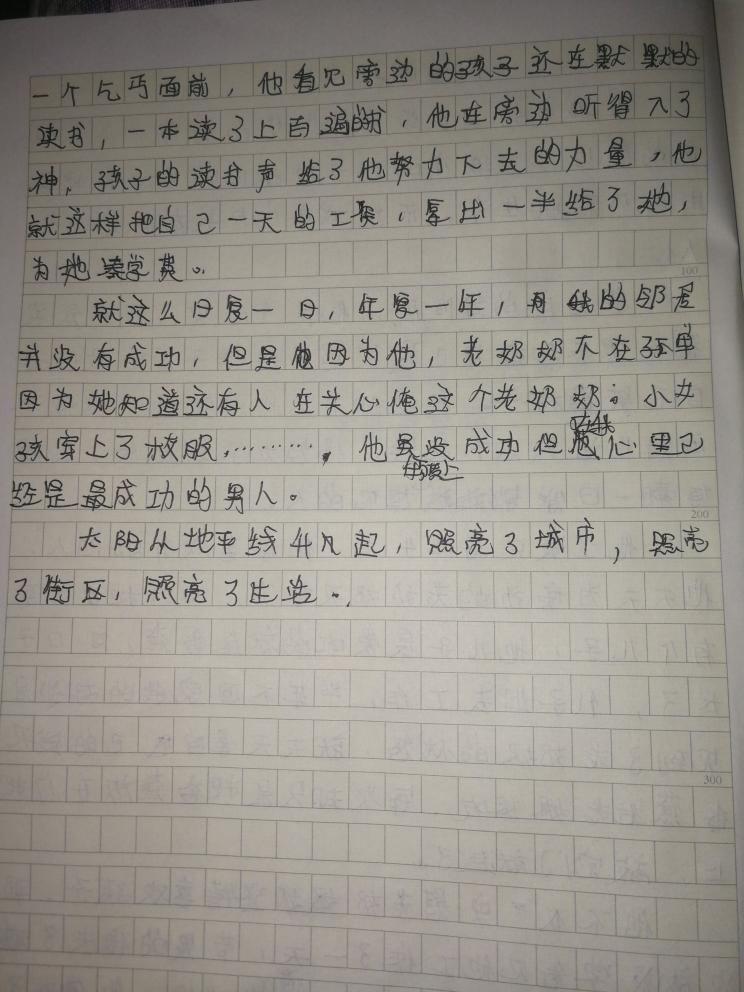 一个乞丐面前，他看见旁边的孩子还在默默的
读书，一本读了上百遍的书，他在旁边听得入了
神，孩子的读书声给了他努力下去的力量，他
就这样把自己一天的工资，拿出一半给了她，
为她凑学费。
100
就这么日复一日，年复一年，我的邻居
并没有成功，但是因为他，老奶奶不在孤单
因为她知道还有人在关心俺这个老奶奶。小女
孩穿上了校服，………。他虽没成功但在我心里已
经是最成功的男人。
200
太阳从地平线升起，照亮了城市，照亮
了街区，照亮了生活。
300